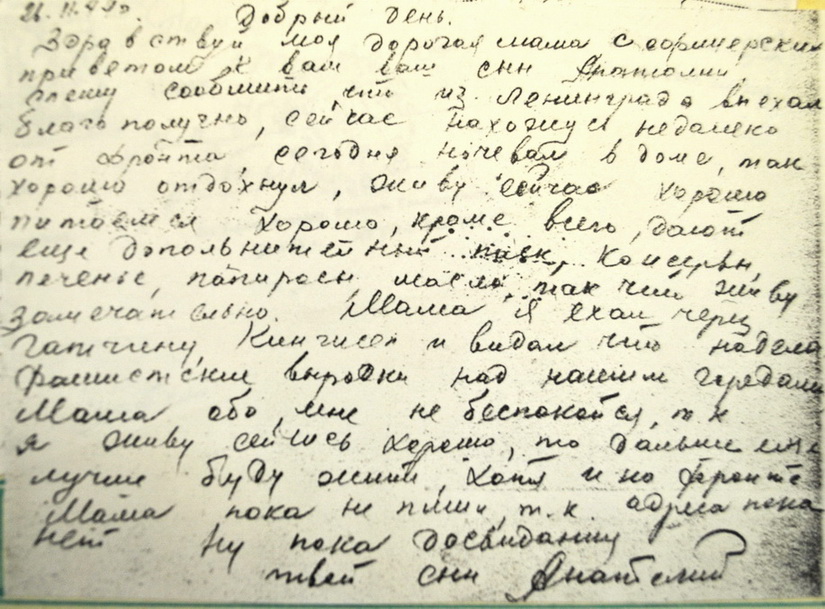 Добрый день.
Здравствуй моя дорогая мама с офицерским
приветом к вам ваш сын Анатолий
спешу сообщить, что из Ленинграда выехал
благополучно, сейчас нахожусь недалеко
от фронта, сегодня ночевал в доме, так
хорошо отдохнул, живу сейчас хорошо
питаемся хорошо, кроме всего, дают
еще дополнительный паек, консервы,
печенье, папиросы, масло, так что живу
замечательно. Мама я ехал через
Гатчину Кингисеп и видал что надела
фашистские выродки над нашим городами
Мама обо мне не беспокойся, т. к
я живу сейчась хорошо, то дальше еще
лучше буду жить, хотя и на фронте
Мама пока не пиши, т. к. адреса пока
нет Ну пока досвидания
твой сын Анатолий